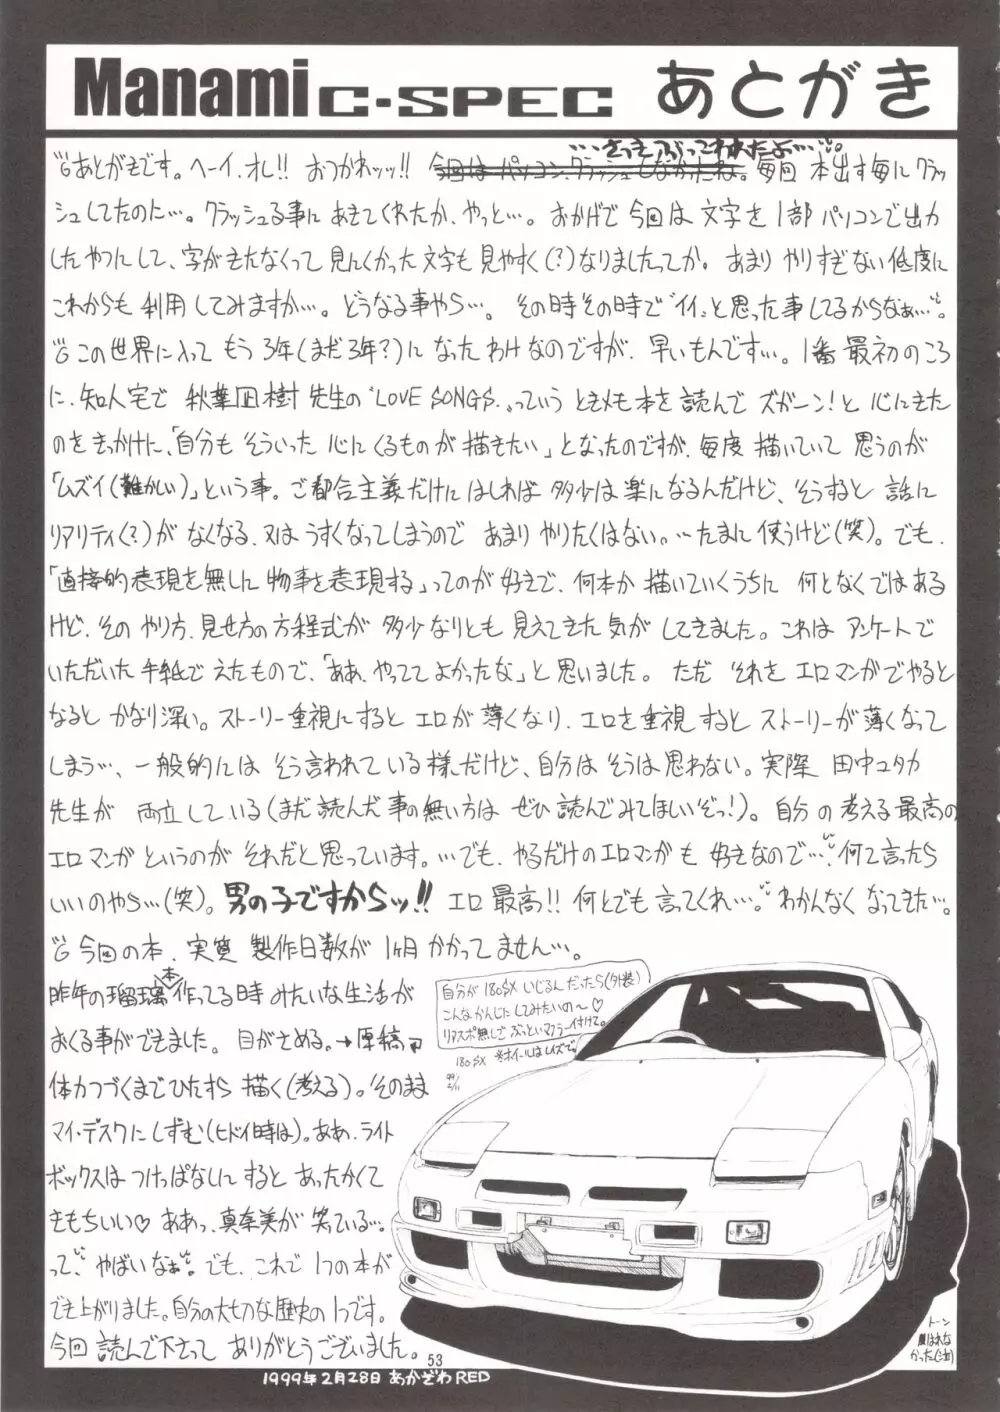 Manami C-SPEC あとがき
…さっきぶってわれたよ…。
あとがきです。ヘーイ、オレ!! おつかれッッ!! 今回はパソコン、クラッシュしなかったね。毎回 本出す毎にクラッ
シュしてたのに…。クラッシュる事に あきてくれたか、やっと…。おかげで今回は文字を1部パソコンで出力
したやつにして、字がきたなくって見にくかった文字も見やすく(?)なりましたってか。あまりやりすぎない低度に
これからも利用してみますか…。どうなる事やら…。その時その時で“イイ”と思った事してるからなぁ…。
この世界に入ってもう3年(まだ3年?)になったわけなのですが、早いもんです…。1番最初のころ
に、知人宅で 秋葉凪樹先生の“LOVE SONGS”っていうときメモ本を読んでズガーン!と心にきた
のをきっかけに、「自分もそういった心にくるものが描きたい」となったのですが、毎度描いていて思うのが
「ムズイ(難かしい)」という事。ご都合主義だけにはしれば多少は楽になるんだけど、そうすると話に
リアリティ(?)がなくなる、又はうすくなってしまうのであまりやりたくはない。…たまに使うけど(笑)。でも、
「直接的表現を無しに物事を表現する」ってのが好きで、何本か描いていくうちに何となくではある
けど、そのやり方、見せ方の方程式が多少なりとも見えてきた気がしてきました。これはアンケートで
いただいた手紙でえたもので、「ああ、やっててよかったな」と思いました。ただそれをエロマンガでやると
なるとかなり深い。ストーリー重視にするとエロが薄くなり、エロを重視するとストーリーが薄くなって
しまう…、一般的にはそう言われている様だけど、自分はそうは思わない。実際 田中ユタカ
先生が両立している(まだ読んだ事の無い方はぜひ読んでみてほしいぞっ!)。自分の考える最高の
エロマンガというのがそれだと思っています。…でも、やるだけのエロマンガも好きなので…、何て言ったら
いいのやら…(笑)。男の子ですからッ!! エロ最高!! 何とでも言ってくれ…。わかんなくなってきた…。
今回の本、実質 製作日数が1ヶ月かかってません…。
昨年の瑠璃本作ってる時みたいな生活が
おくる事ができました。目がさめる。→原稿→
体力つづくまでひたすら描く(考える)。そのまま
マイ・デスクにしずむ(ヒドイ時は)。ああ、ライト
ボックスはつけっぱなしにするとあったかくて
きもちいい♡ ああっ、真奈美が笑ている…。
って、やばいなぁ。でも、これで1つの本が
でき上がりました。自分の大切な歴史の1つです。
今回読んで下さってありがとうございました。
自分が180SXいじるんだったら(外装)
こんなかんじにしてみたいの〜♡
リアスポ無しでぶっといマフラー付けて。
180SX ※ホイールはレイズで
99/2/11
トーン
はれな
かった(泣)
53
1999年2月28日 あかざわRED